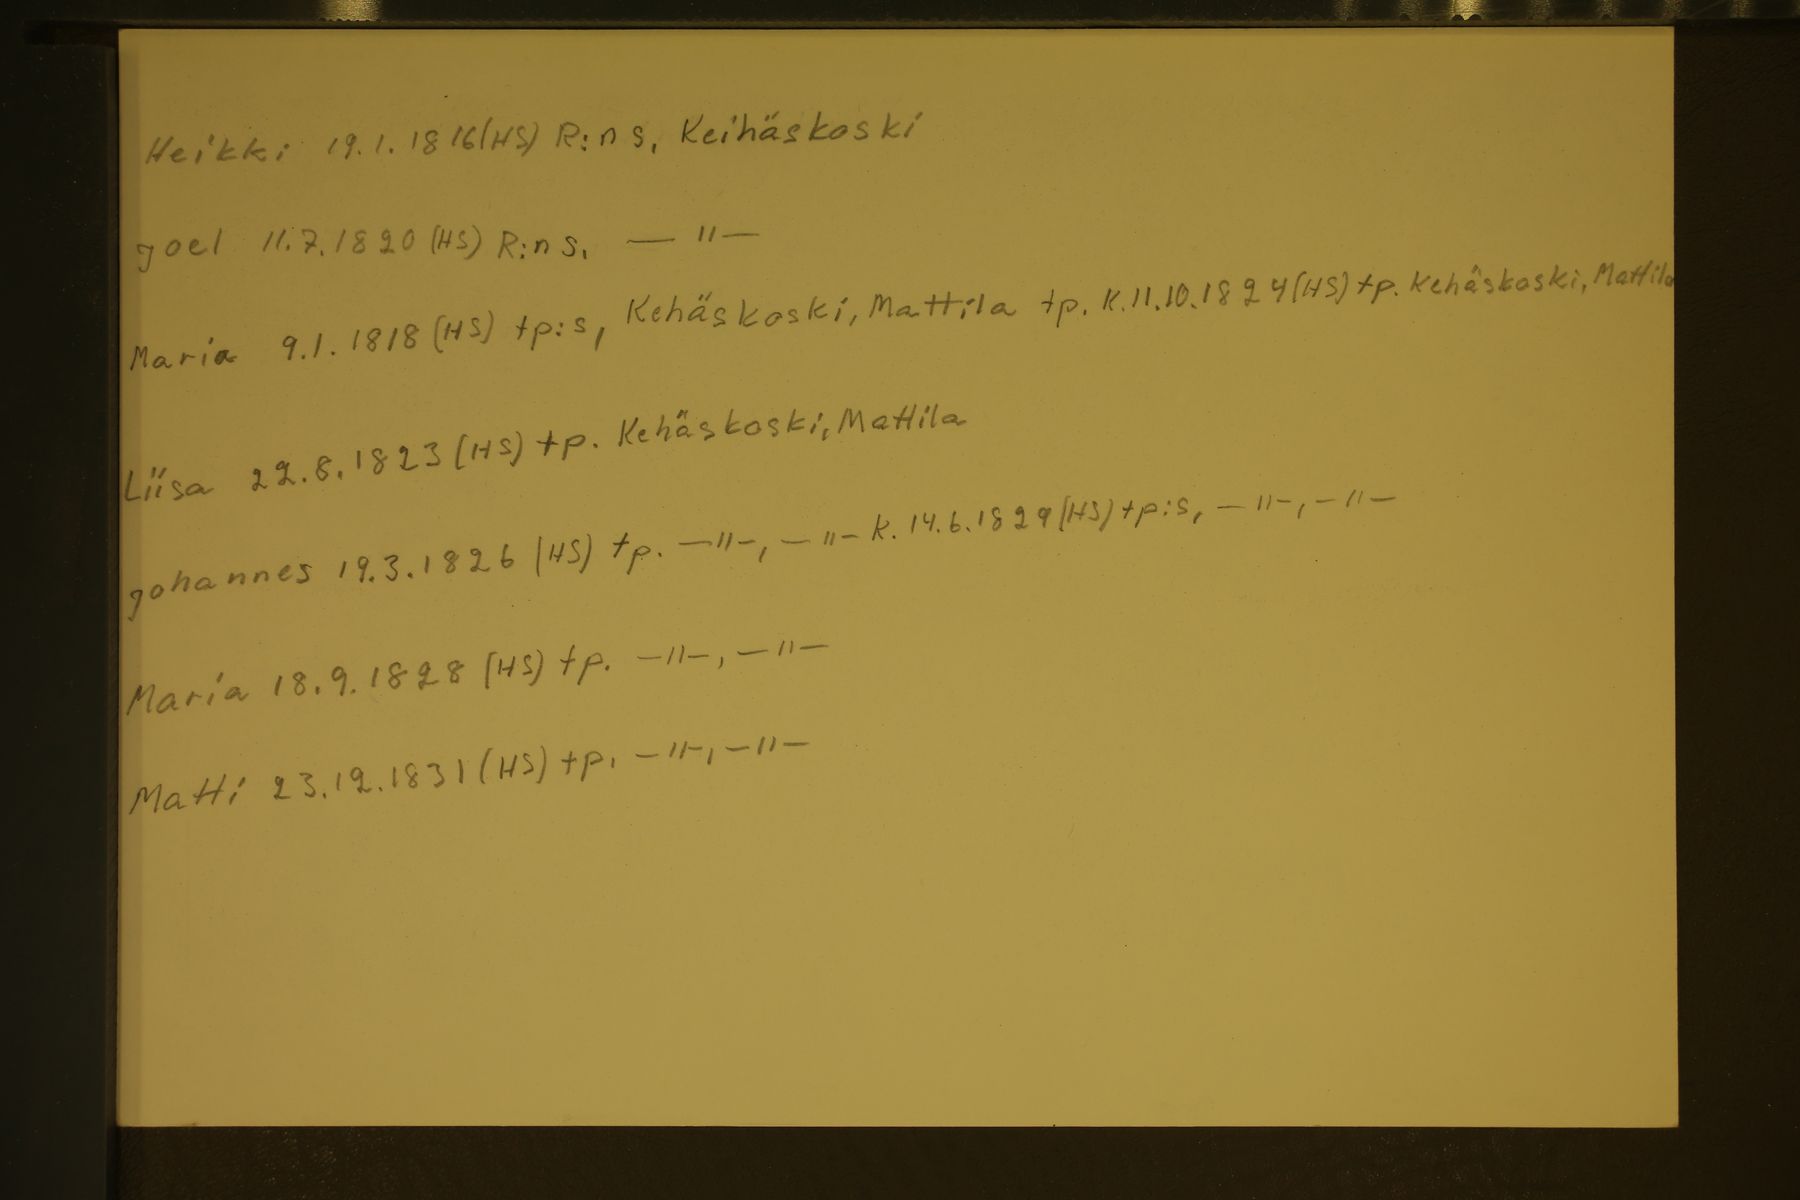 Heikki 19.1.1816(HS) R:n s, Keihäskoski
Joel 11.7.1820 (HS) R:n s, — " —
Maria 9.1.1818 (HS) tp:s, Kehäskoski, Mattila tp. K.11.10.1824(HS) tp. Kehäskoski, Mattila
Liisa 22.8.1823 (HS) tp. Kehäskoski, Mattila
Johannes 19.3.1826 (HS) tp. — " —, — " — K. 14.6.1829 (HS) tp:s, — " —, — " —
Maria 18.9.1828 (HS) tp. — " —, — " —
Matti 23.12.1831 (HS) tp. — " —, — " —